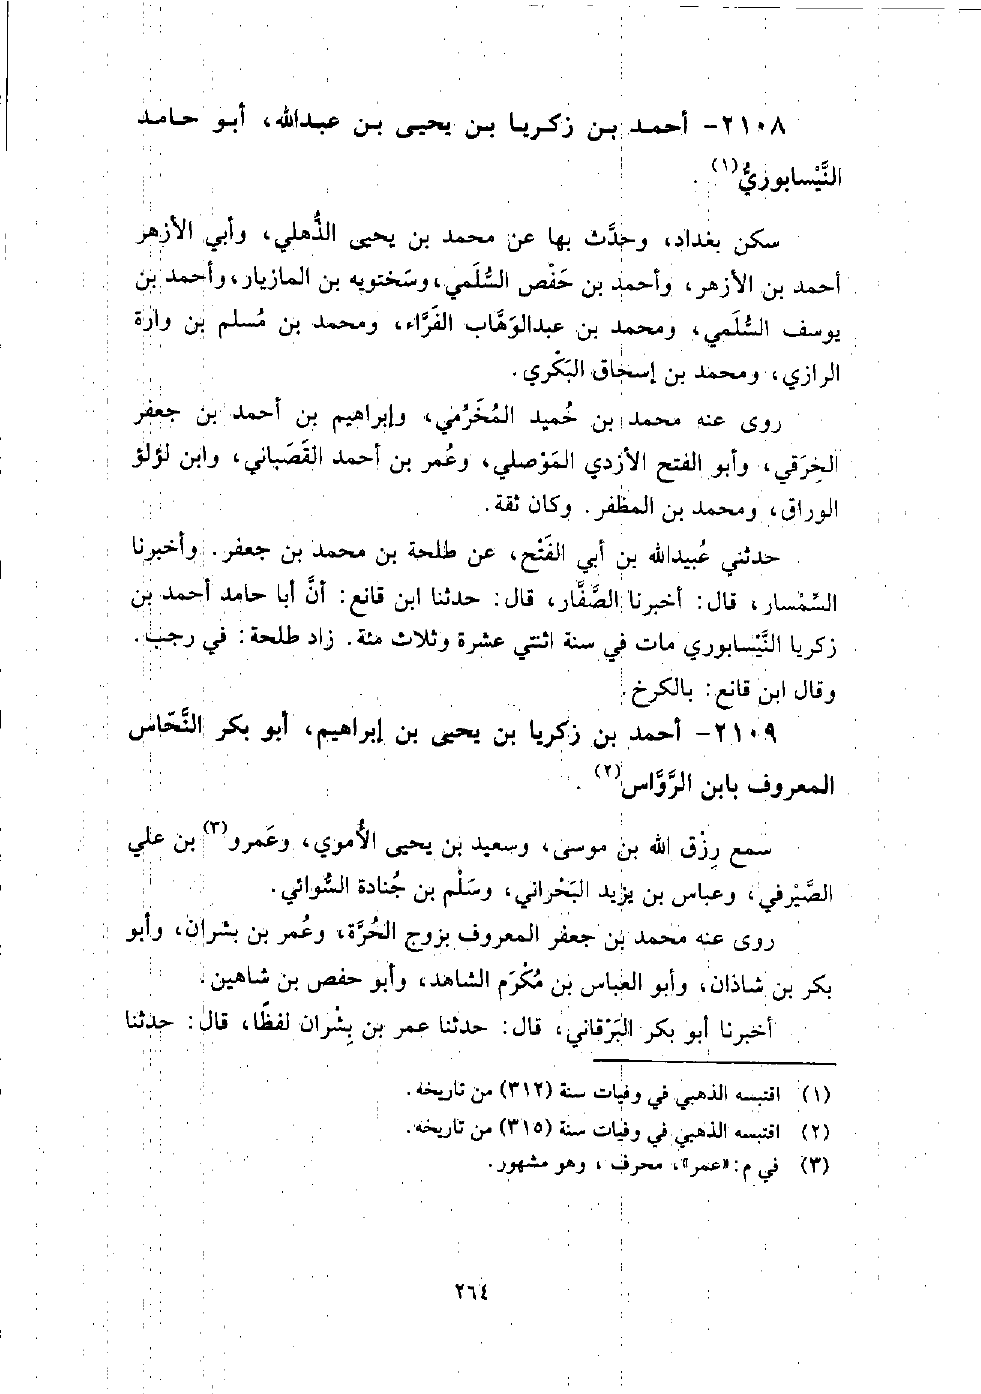 ٢١٠٨- أحمد بن زكريا بن يحيى بن عبدالله، أبو حامد
النَّيْسابوريُّ(١).
سكن بغداد، وحدَّث بها عن محمد بن يحيى الذُّهلي، وأبي الأزهر
أحمد بن الأزهر، وأحمد بن حَفْص السُّلَمي، وسَختويه بن المازيار، وأحمد بن
يوسف السُّلَمي، ومحمد بن عبدالوَهَّاب الفَرَّاء، ومحمد بن مُسلم بن وارة
الرازي، ومحمد بن إسحاق البَكْري.
روى عنه محمد بن حُميد المُخَرِّمي، وإبراهيم بن أحمد بن جعفر
الخِرَقي، وأبو الفتح الأزدي المَوْصلي، وعُمر بن أحمد القَصَباني، وابن لؤلؤ
الوراق، ومحمد بن المظفر. وكان ثقة.
حدثني عُبيدالله بن أبي الفَتْح، عن طلحة بن محمد بن جعفر. وأخبرنا
السِّمْسار، قال: أخبرنا الصَّفَّار، قال: حدثنا ابن قانع: أنَّ أبا حامد أحمد بن
زكريا النَّيْسابوري مات في سنة اثنتي عشرة وثلاث مئة. زاد طلحة: في رجب.
وقال ابن قانع: بالكرخ.
٢١٠٩- أحمد بن زكريا بن يحيى بن إبراهيم، أبو بكر النَّحّاس
المعروف بابن الرَّوَّاس(٢).
سمع رِزْق الله بن موسى، وسعيد بن يحيى الأُموي، وعَمرو(٣) بن علي
الصَّيْرفي، وعباس بن يزيد البَحْراني، وسَلْم بن جُنادة السُّوائي.
روى عنه محمد بن جعفر المعروف بزوج الحُرَّة، وعُمر بن بشران، وأبو
بكر بن شاذان، وأبو العباس بن مُكْرَم الشاهد، وأبو حفص بن شاهين.
أخبرنا أبو بكر البَرْقاني، قال: حدثنا عمر بن بِشْران لفظًا، قال: حدثنا
(١) اقتبسه الذهبي في وفيات سنة (٣١٢) من تاريخه.
(٢) اقتبسه الذهبي في وفيات سنة (٣١٥) من تاريخه.
(٣) في م: «عمر»، محرف، وهو مشهور.
٢٦٤